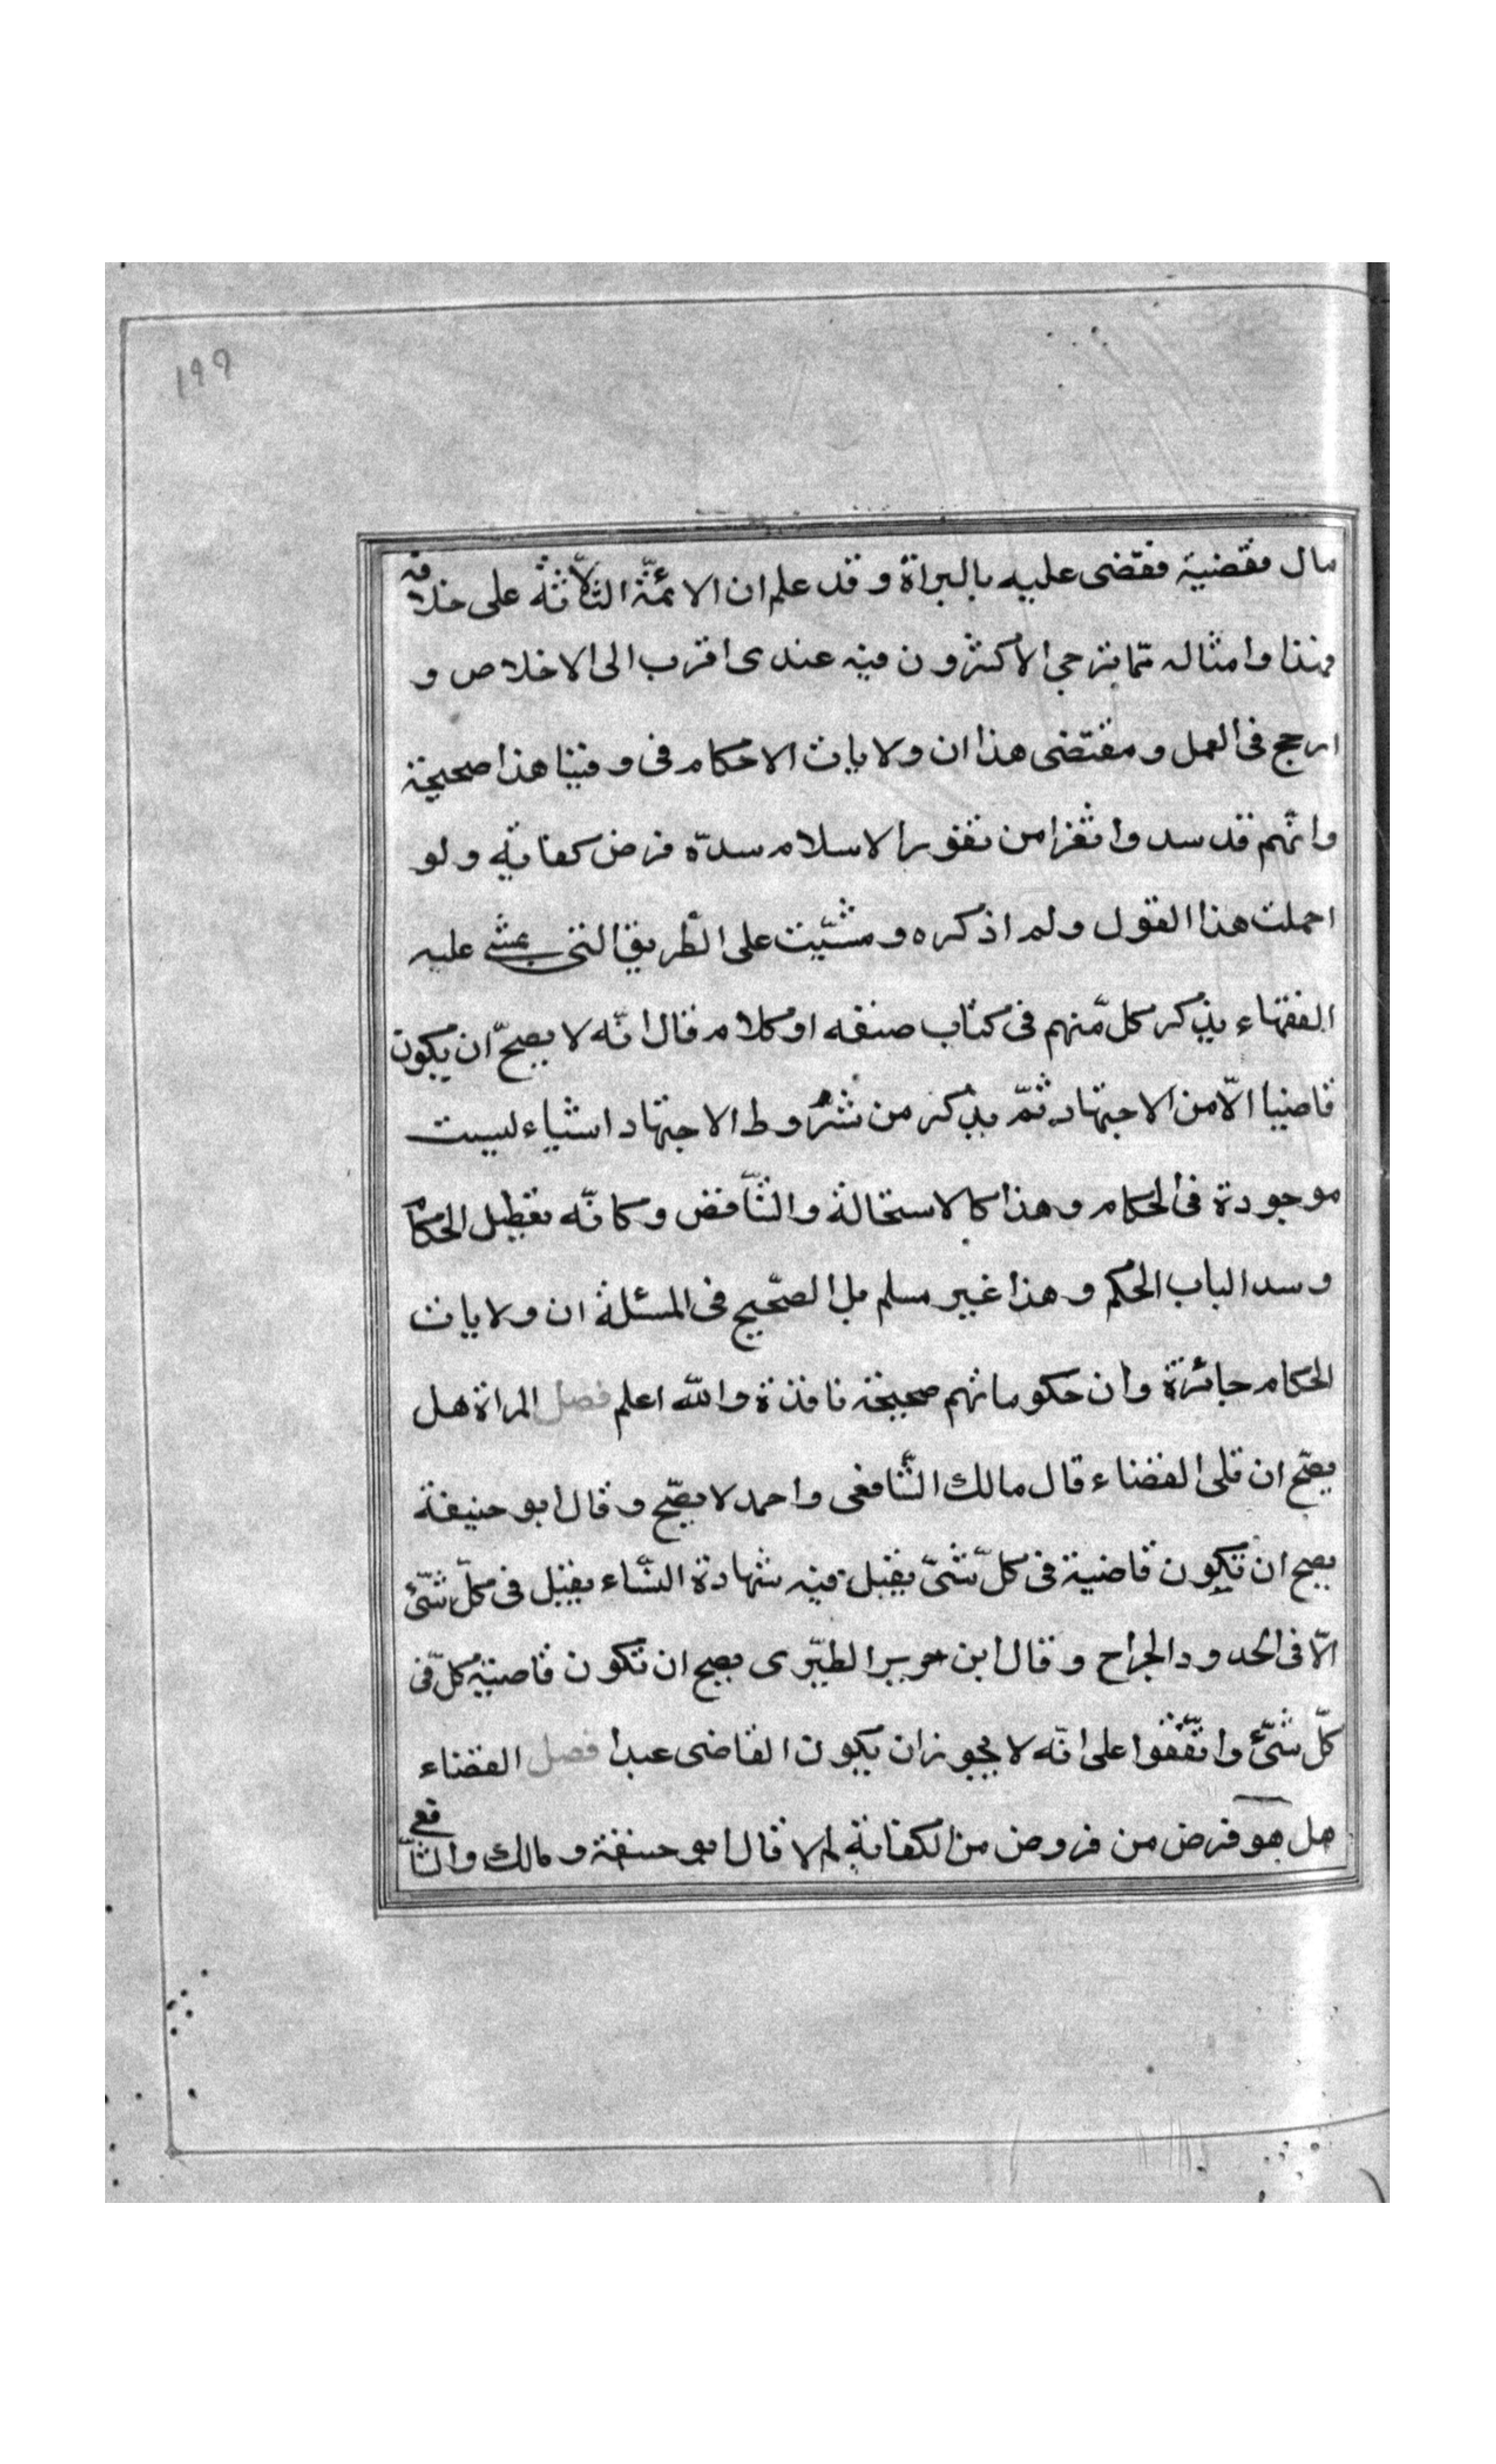 ١٩٩
مال فقضية فقضى عليه بالبراة وقد علم ان الائمّة الثلاثة على خلافه
فهذا وامثاله ممّا يترجى الاكثرون فيه عندى اقرب الى الاخلاص و
ارجح فى العمل ومقتضى هذا ان ولايات الاحكام فى وقتنا هذا صحيحة
وانّهم قد سدوا ثغرا من ثغور الاسلام سدّه فرض كفاية ولو
اهملت هذا القول ولم اذكره ومشيّت على الطّريق التى يمشى عليه
الفقهاء يذكر كلّ منهم فى كتاب صنفه او كلام قال انّه لا يصحّ ان يكون
قاضيا الّا من الاجتهاد ثمّ يذكر من شروط الاجتهاد اشياء ليست
موجودة فى الحكام وهذا كالاستحالة والتّناقض وكانّه تعطيل الحكام
وسد الباب الحكم وهذا غير مسلم بل الصّحيح فى المسئلة ان ولايات
الحكام جائزة وان حكوماتهم صحيحة نافذة والله اعلم فصل المراة هل
يصّح ان تلى القضاء قال مالك الشّافعى واحمد لا يصّح وقال ابو حنيفة
يصح ان تكون قاضية فى كلّ شىّ يقبل فيه شهادة النّساء يقبل فى كلّ شىّء
الّا فى الحدود والجراح وقال ابن جرير الطبّرى يصح ان تكون قاضية كلّ فى
كلّ شىّء واتّفقوا على انّه لا يجوز ان يكون القاضى عبدا فصل القضاء
هل هو فرض من فروض من الكفاية ام لا قال ابو حنيفة ومالك والشّافعى